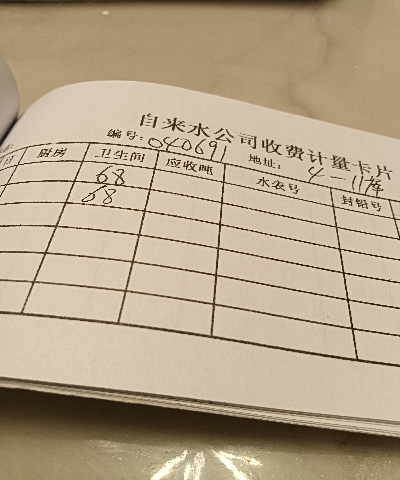 自来水公司收费计量卡片
编号: 040691 地址: 4-11库
厨房 卫生间 应收吨 水表号 封铅号
68
68